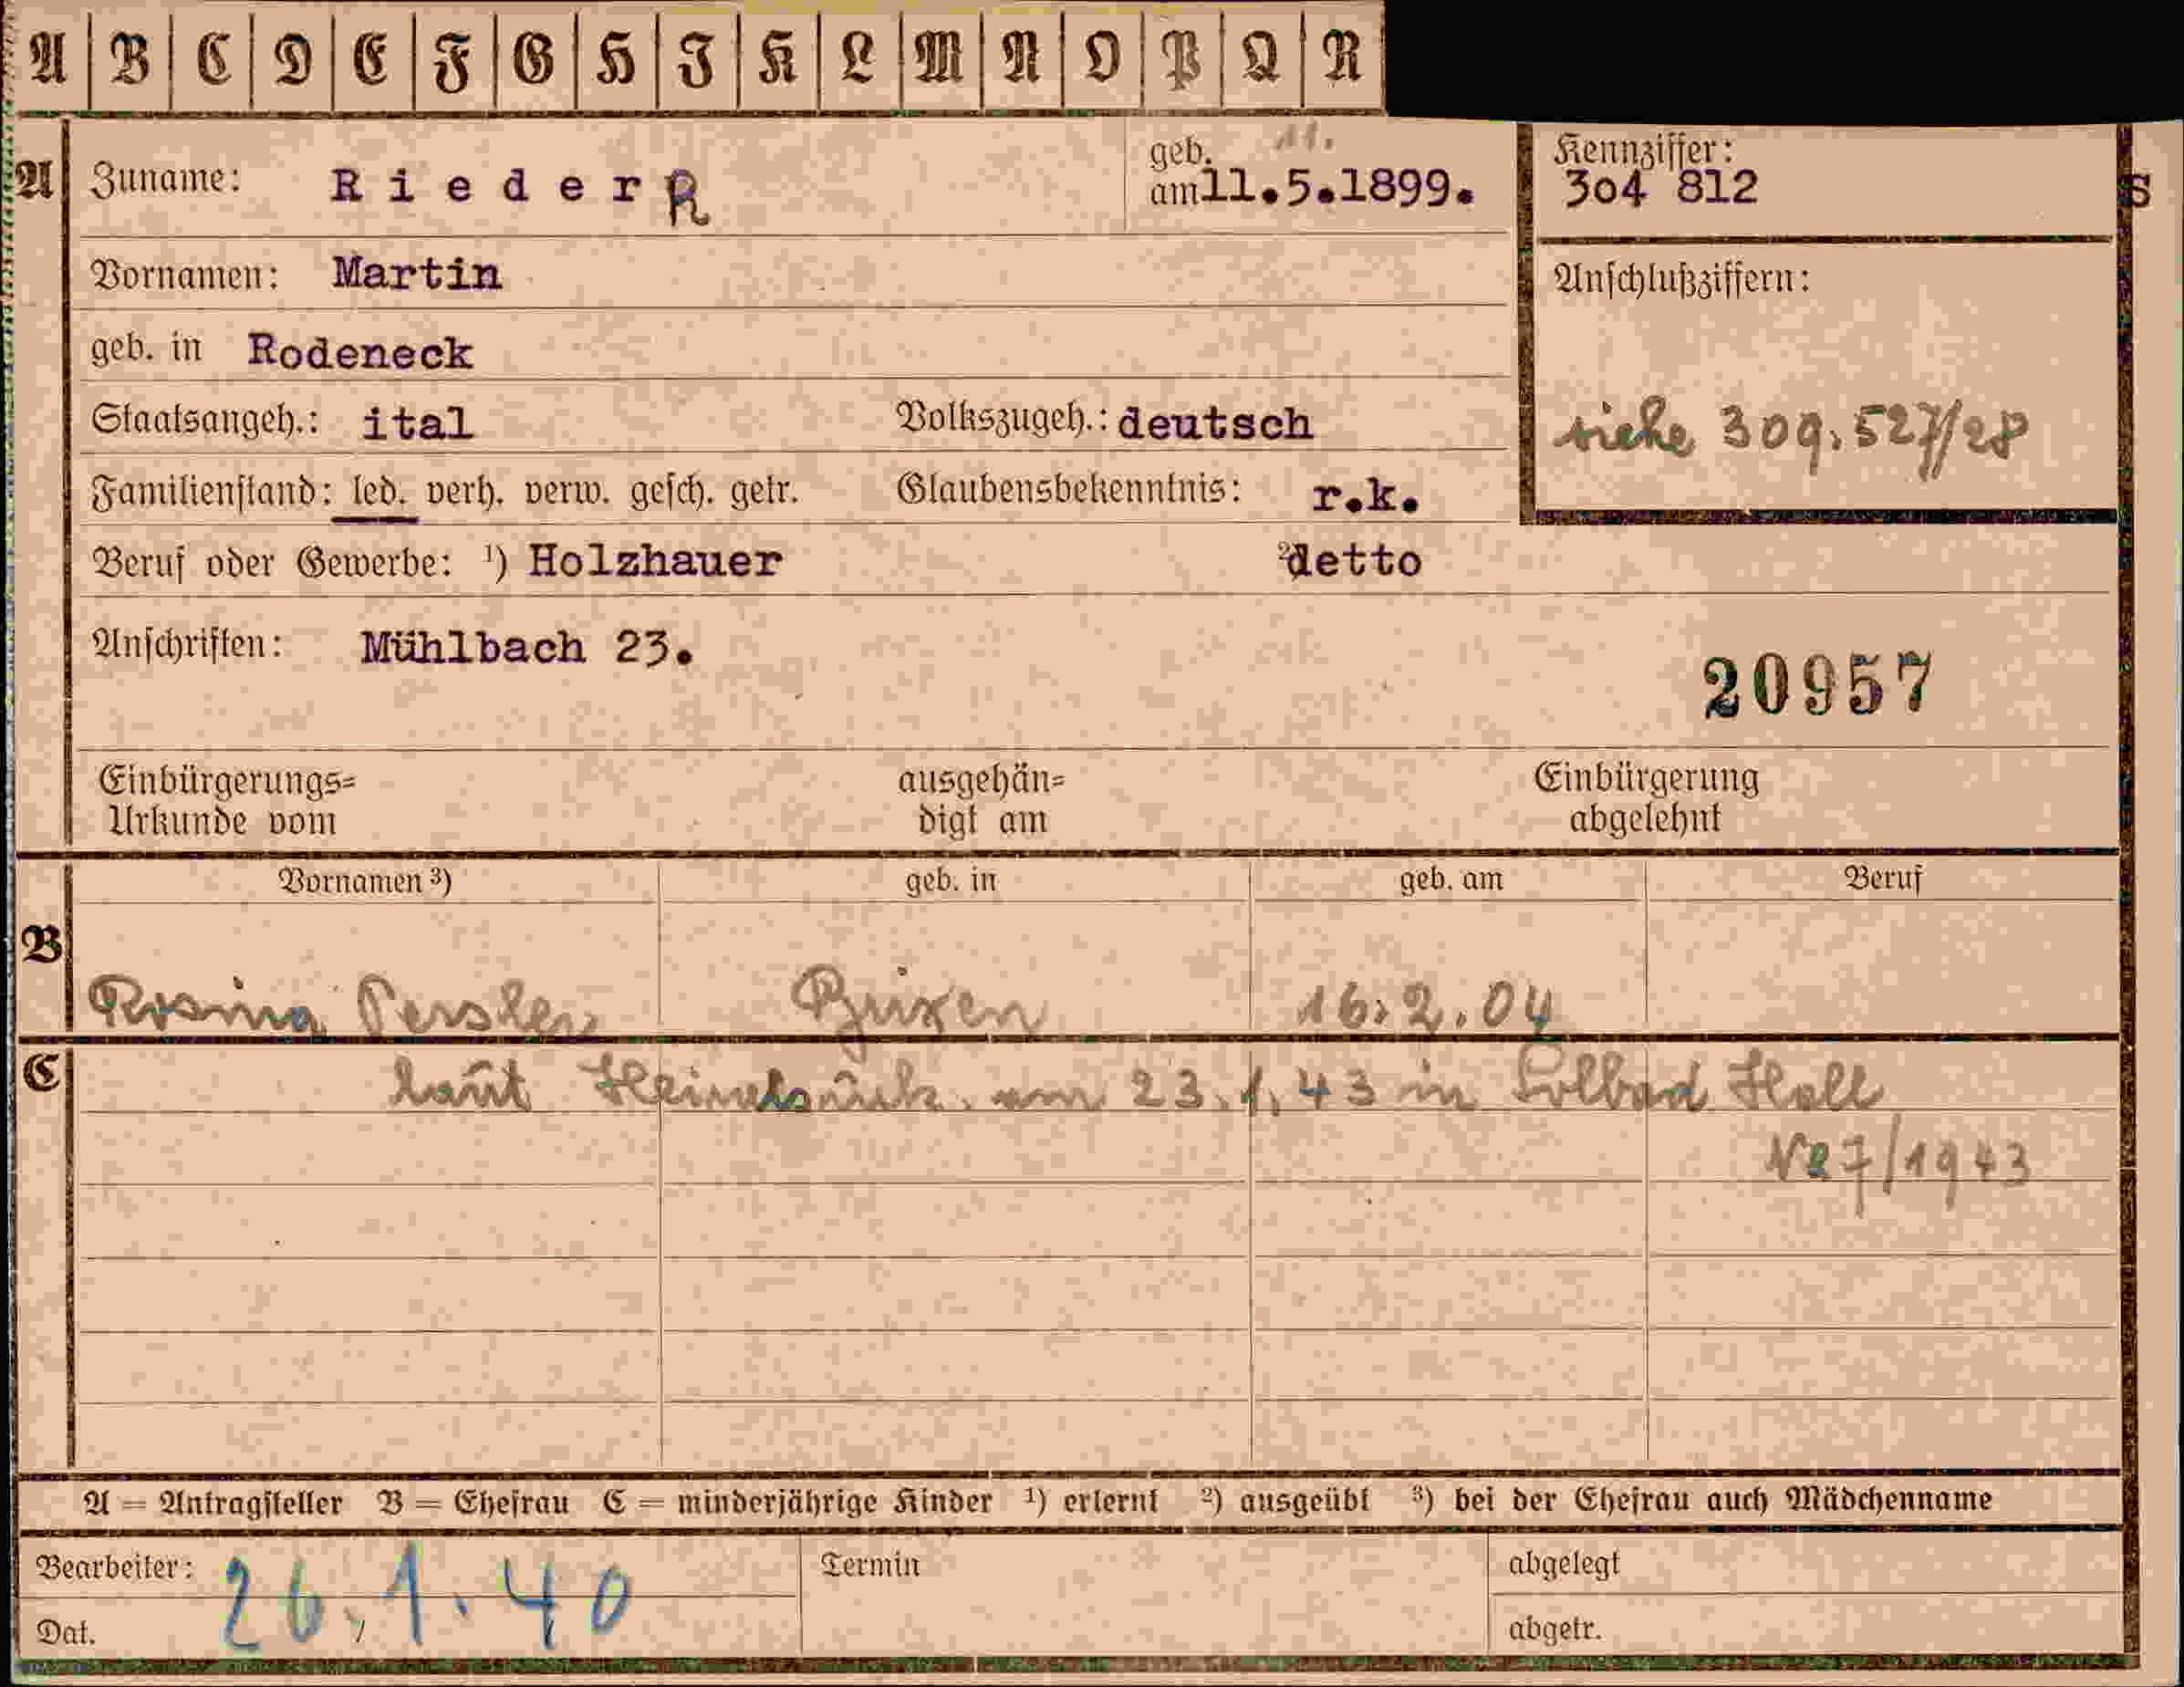 A B C D E F G H I K L M N O P Q R
A Zuname: Rieder R geb. 11.
am 11.5.1899. Kennziffer:
304 812 S
Vornamen: Martin Anschlußziffern:
geb. in Rodeneck
Staatsangeh.: ital Volkszugeh.: deutsch siehe 309.527/28
Familienstand: led. verh. verw. gesch. getr. Glaubensbekenntnis: r.k.
Beruf oder Gewerbe: ¹) Holzhauer ²) detto
Anschriften: Mühlbach 23.
20957
Einbürgerungs=
Urkunde vom ausgehän=
digt am Einbürgerung
abgelehnt
Vornamen ³) geb. in geb. am Beruf
B Rosina Brixen 16.2.04
C laut am 23.1.43 in Solbad Hall
N27/1943
A = Antragsteller B = Ehefrau C = minderjährige Kinder ¹) erlernt ²) ausgeübt ³) bei der Ehefrau auch Mädchenname
Bearbeiter: 26.1.40 Termin abgelegt
Dat. abgetr.